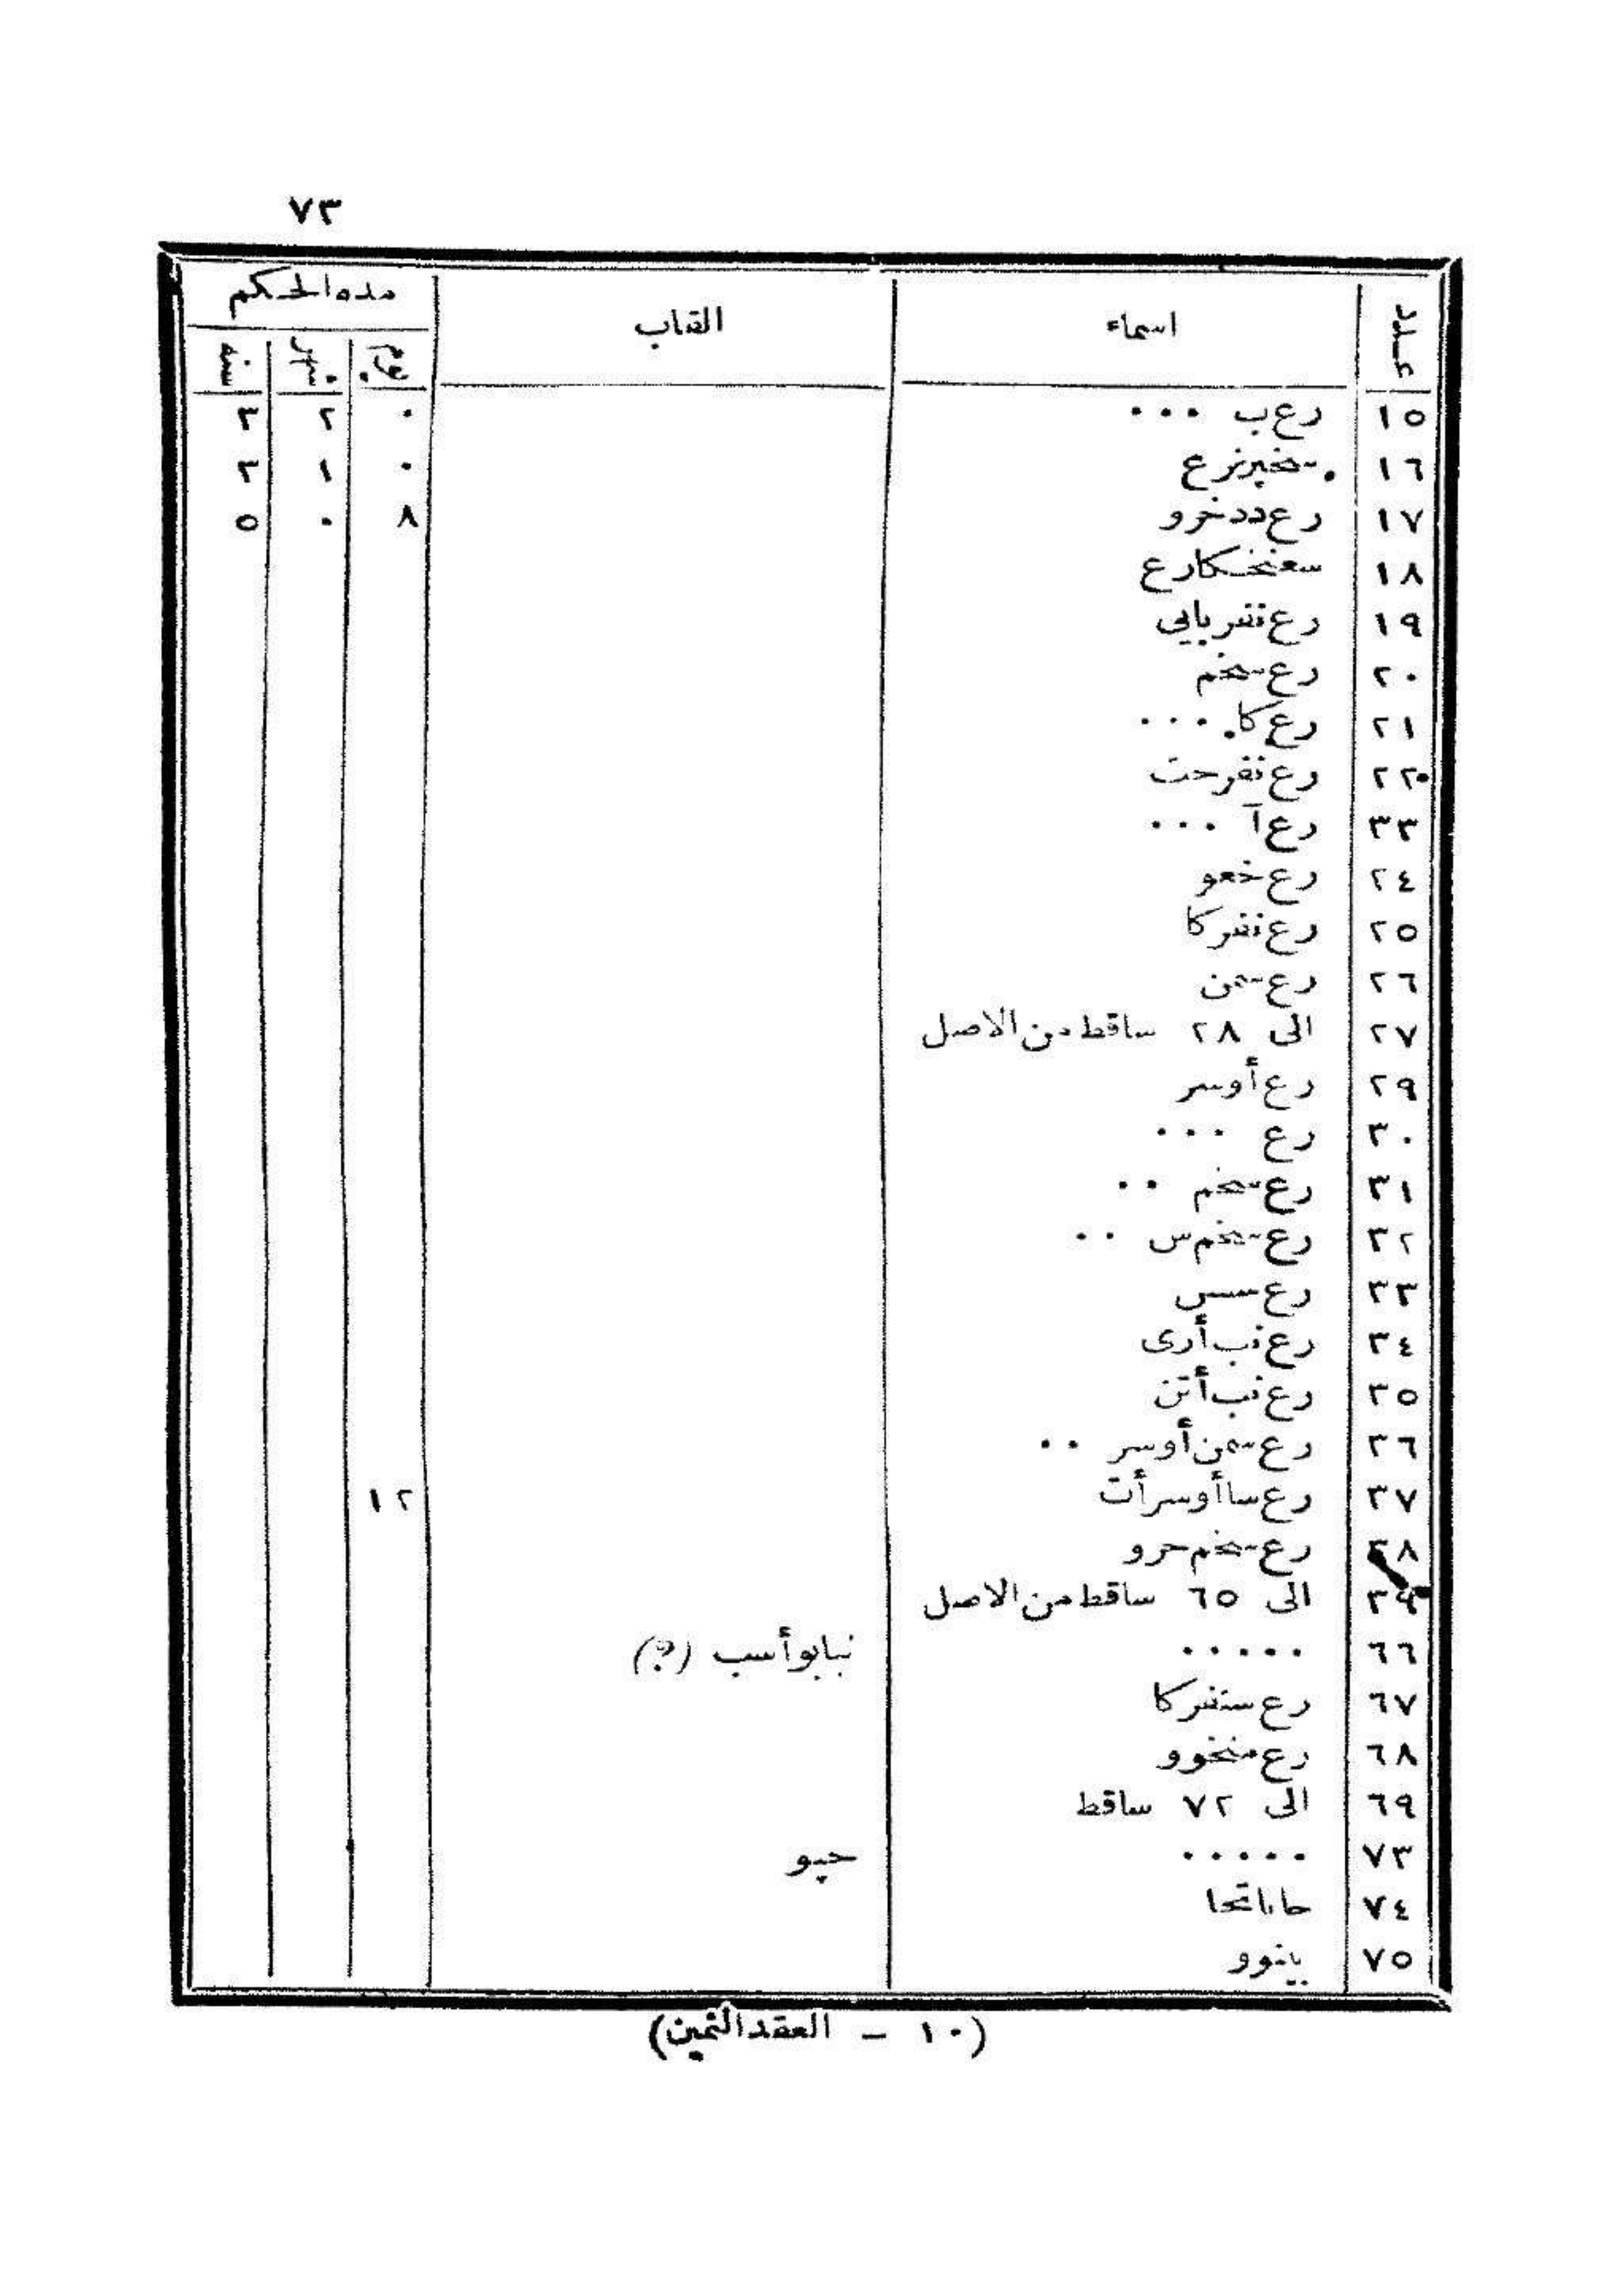 ٧٣
عدد اسماء القاب مده الحكم
يوم شهر سنه
١٥ رع ب ... ٠ ٢ ٣
١٦ سخپرنرع ٠ ١ ٣
١٧ رع ددخرو ٨ ٠ ٥
١٨ سعنخكارع
١٩ رع نفر بايى
٢٠ رع سخم
٢١ رع كا ...
٢٢ رع نفرحت
٣٣ رع آ ...
٢٤ رع خعو
٢٥ رع نفركا
٢٦ رع سمن
٢٧ الى ٢٨ ساقط من الاصل
٢٩ رع أوسر
٣٠ رع ...
٣١ رع سخم ..
٣٢ رع سخم س ..
٣٣ رع سسس
٣٤ رع نب أرى
٣٥ رع نب أتن
٣٦ رع سمن أوسر ..
٣٧ رع سا أوسر أت ١٢
٣٨ رع سخم حرو
٣٩ الى ٦٥ ساقط من الاصل
٦٦ ..... نبابو أسب (؟)
٦٧ رع ستفركا
٦٨ رع منخوو
٦٩ الى ٧٢ ساقط
٧٣ ..... حپو
٧٤
٧٥
(١٠ - العقد الثمين)